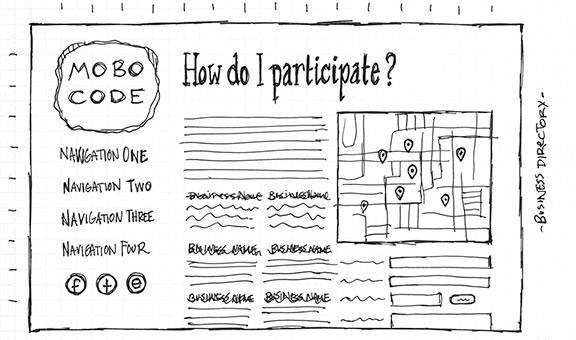 MOBO
CODE
NAVIGATION ONE
NAVIGATION TWO
NAVIGATION THREE
NAVIGATION FOUR
f t @
How do I participate?
BUSINESS NAME BUSINESS NAME
BUSINESS NAME BUSINESS NAME
BUSINESS NAME BUSINESS NAME
- BUSINESS DIRECTORY -